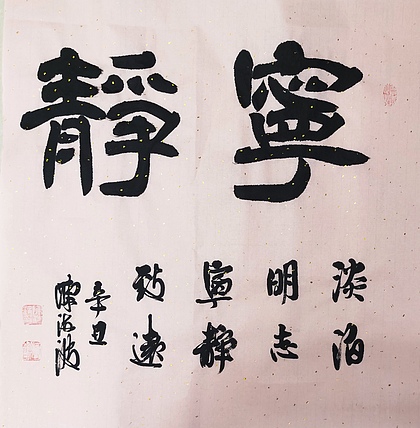 寧靜
淡泊
明志
寧靜
致遠
辛丑